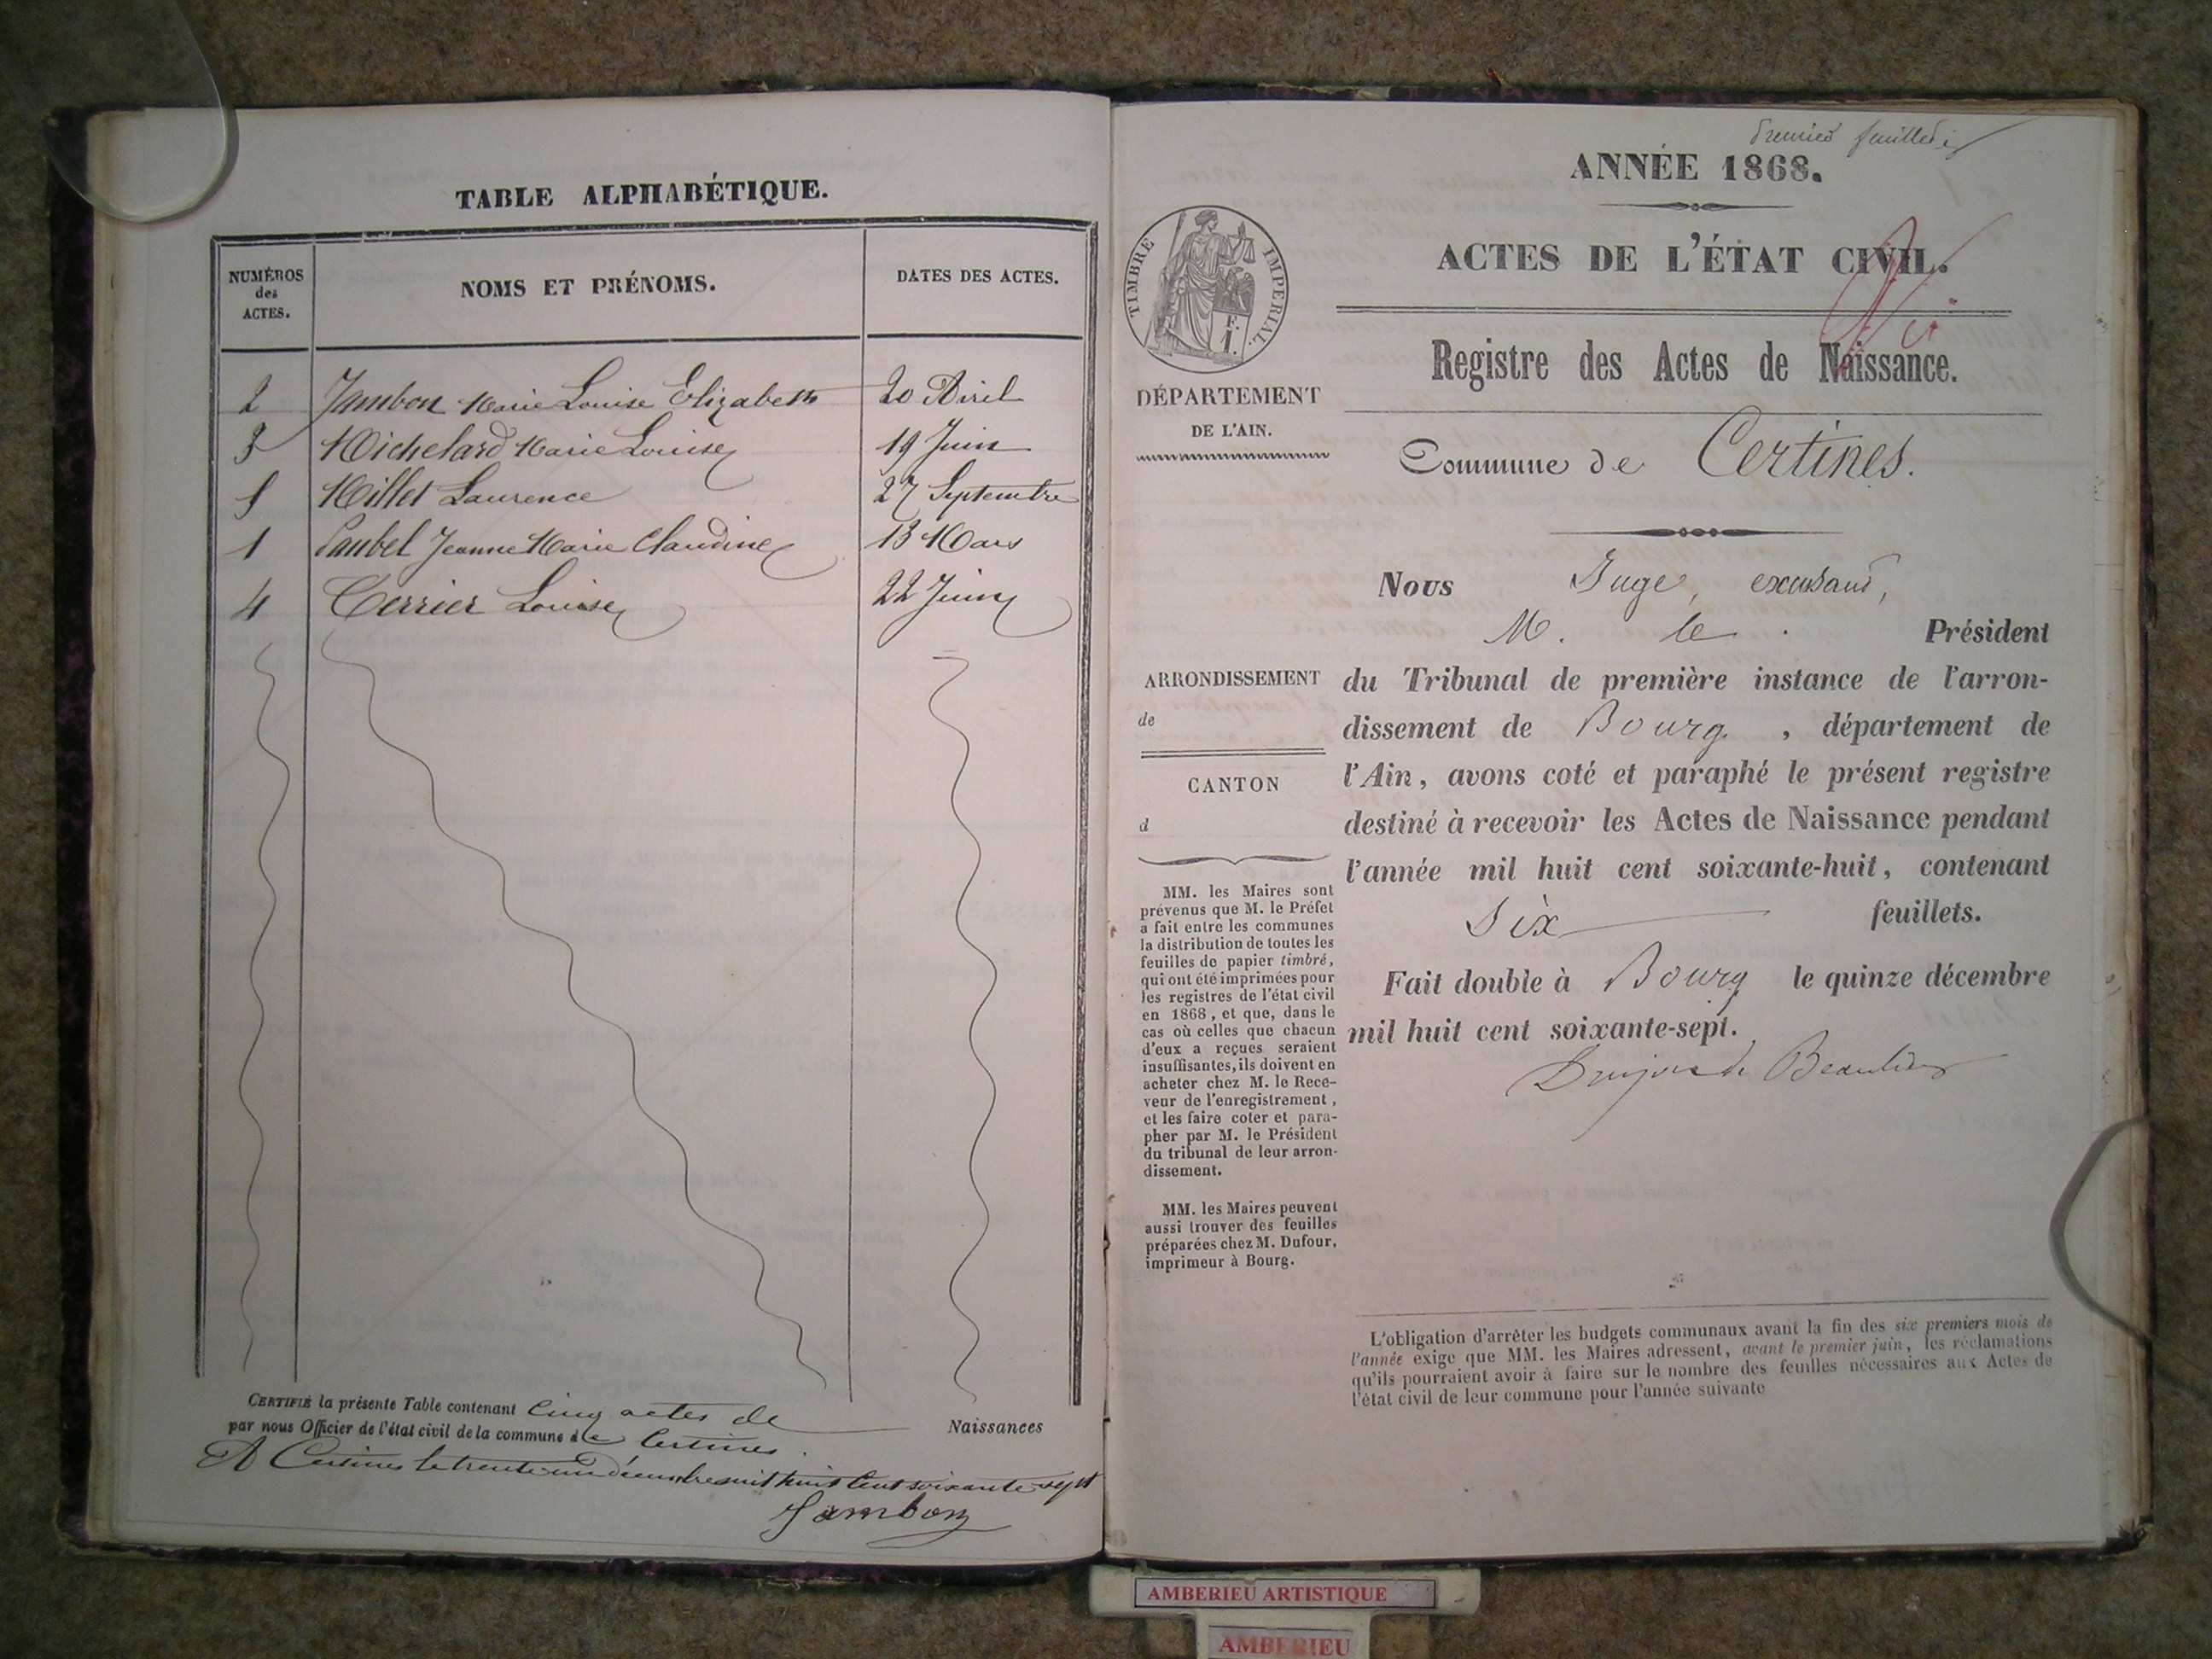 TABLE ALPHABÉTIQUE.
NUMÉROS
des
ACTES.
NOMS ET PRÉNOMS.
DATES DES ACTES.
2 Jambon Marie Louise Elizabeth 20 Avril
3 Michelard Marie Louise 19 Juin
5 Millet Laurence 27 Septembre
1 Paubel Jeanne Marie Claudine 13 Mars
4 Terrier Louise 22 Juin
CERTIFIÉ la présente Table contenant Cinq actes de Naissances
par nous Officier de l'état civil de la commune de Certines.
A Certines le trente un décembre mil huit cent soixante sept
Jambon
Premier feuillet
ANNÉE 1868.
ACTES DE L'ÉTAT CIVIL.
Registre des Actes de Naissance.
TIMBRE IMPÉRIAL.
DÉPARTEMENT
DE L'AIN.
Commune de Certines.
Nous Juge, excusant,
M. le Président
du Tribunal de première instance de l'arron-
dissement de Bourg, département de
l'Ain, avons coté et paraphé le présent registre
destiné à recevoir les Actes de Naissance pendant
l'année mil huit cent soixante-huit, contenant
Six feuillets.
Fait double à Bourg le quinze décembre
mil huit cent soixante-sept.
de Beaulieu
ARRONDISSEMENT
de
CANTON
d
MM. les Maires sont
prévenus que M. le Préfet
a fait entre les communes
la distribution de toutes les
feuilles de papier timbré,
qui ont été imprimées pour
les registres de l'état civil
en 1868, et que, dans le
cas où celles que chacun
d'eux a reçues seraient
insuffisantes, ils doivent en
acheter chez M. le Rece-
veur de l'enregistrement,
et les faire coter et para-
pher par M. le Président
du tribunal de leur arron-
dissement.
MM. les Maires peuvent
aussi trouver des feuilles
préparées chez M. Dufour,
imprimeur à Bourg.
L'obligation d'arrêter les budgets communaux avant la fin des six premiers mois de
l'année exige que MM. les Maires adressent, avant le premier juin, les réclamations
qu'ils pourraient avoir à faire sur le nombre des feuilles nécessaires aux Actes de
l'état civil de leur commune pour l'année suivante
AMBERIEU ARTISTIQUE
AMBERIEU